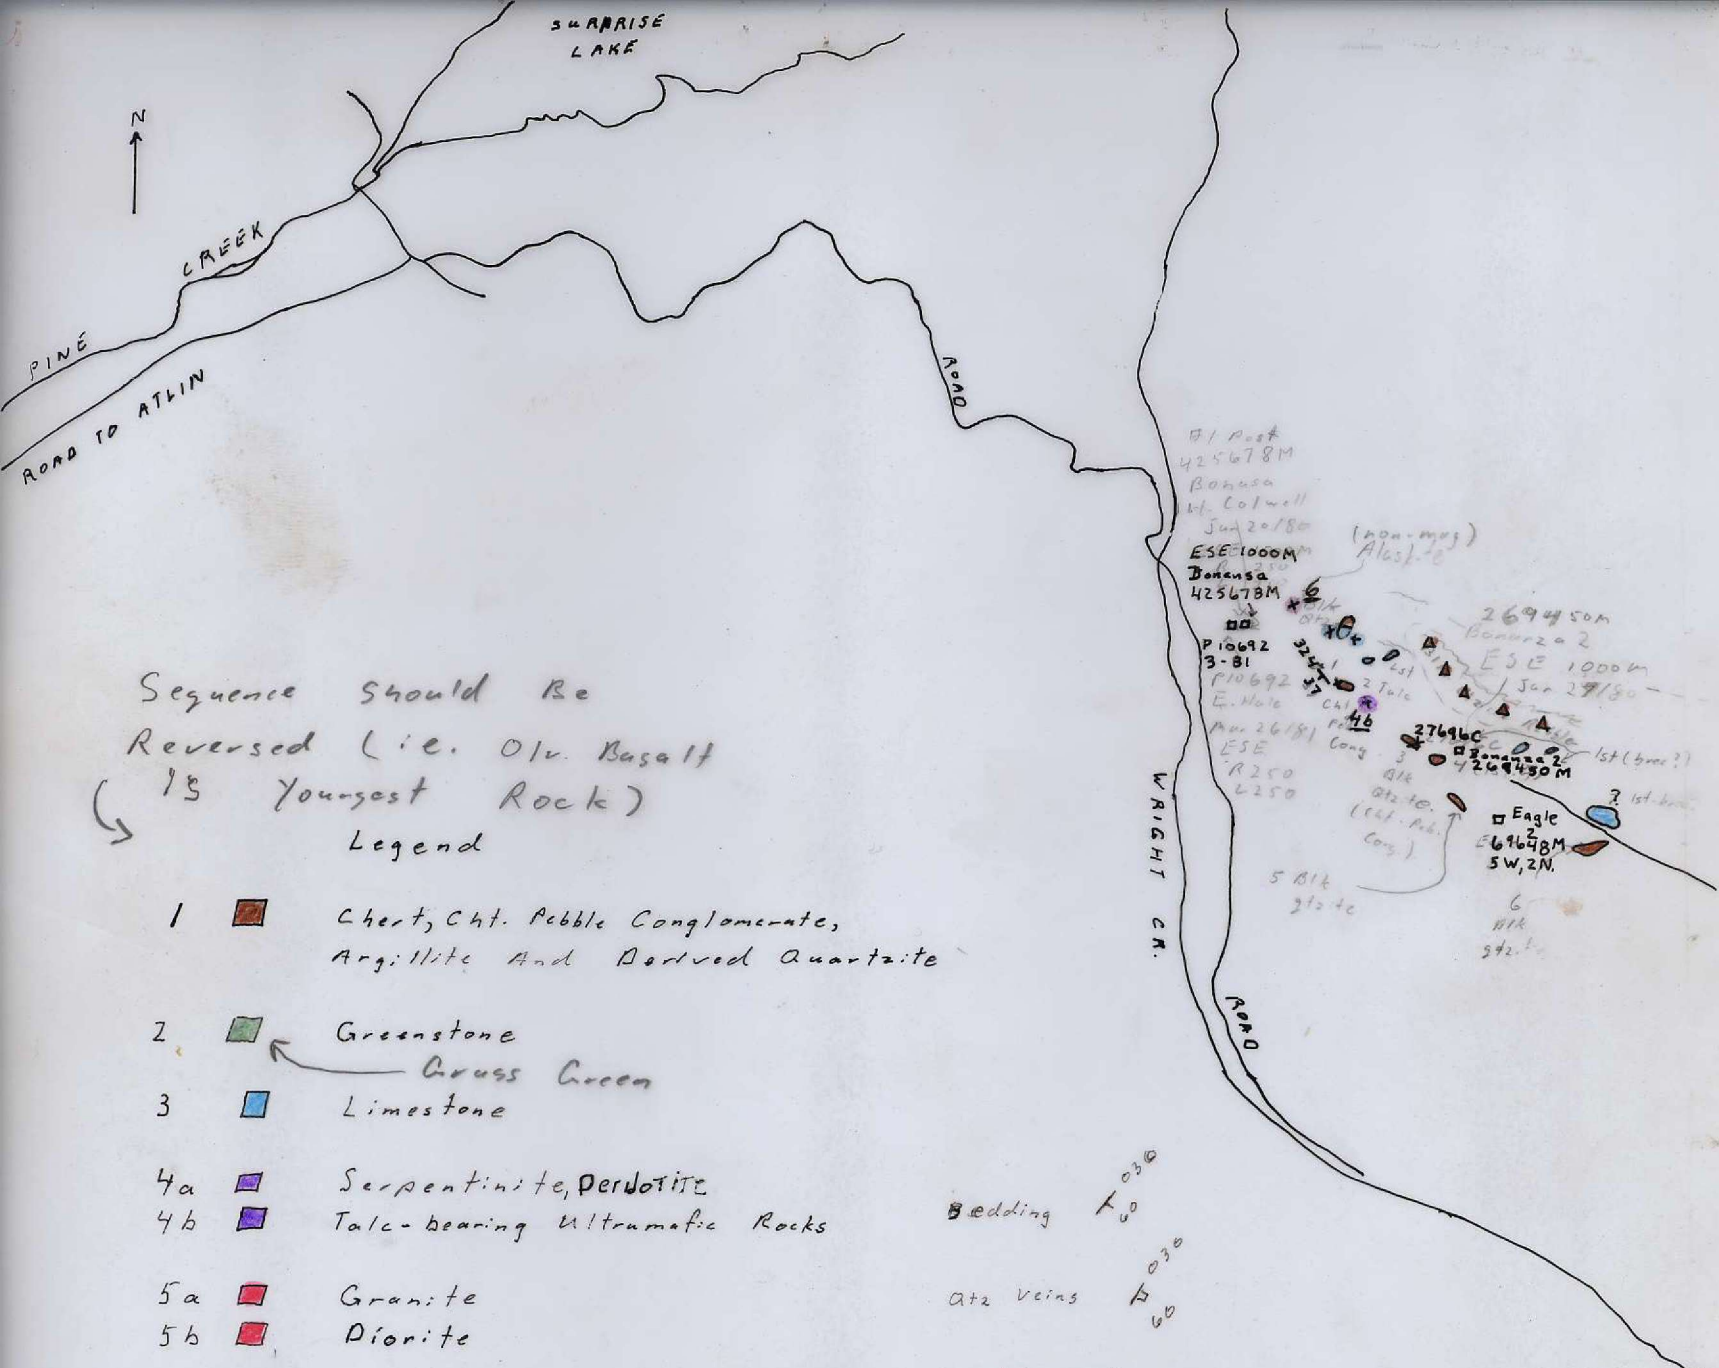 SURPRISE
LAKE
N
CREEK
PINE
ROAD TO ATLIN
ROAD
#1 Post
425678M
Bonusa
Colwell
Jun 20/80
(non-mag)
Alaskite
ESE 1000M
Bonansa
425678M
6
Blk
Qtz
P10692
3-81
324
37
P10692
E. Hole
Mar. 26/81
ESE
R250
L250
1
Lst
2 Talc
4b
Cht
Peb
Cong
269450M
Bonanza 2
ESE 1000M
Jan 29/80
27696C
Bonanza 2
269450M
1st (brec?)
3
Blk
Qtzite
(Cht. Peb.
Cong.)
?
1st-brec
Eagle
2
E69648M
5W, 2N.
5 Blk
qtzite
6
Blk
qtzite
WRIGHT CR.
ROAD
Sequence Should Be
Reversed (ie. Olv. Basalt
is Youngest Rock)
Legend
1 Chert, Cht. Pebble Conglomerate,
Argillite And Derived Quartzite
2 Greenstone
Grass Green
3 Limestone
4a Serpentinite, Peridotite
4b Talc-bearing Ultramafic Rocks
5a Granite
5b Diorite
Bedding 030 60
Qtz Veins 030 60